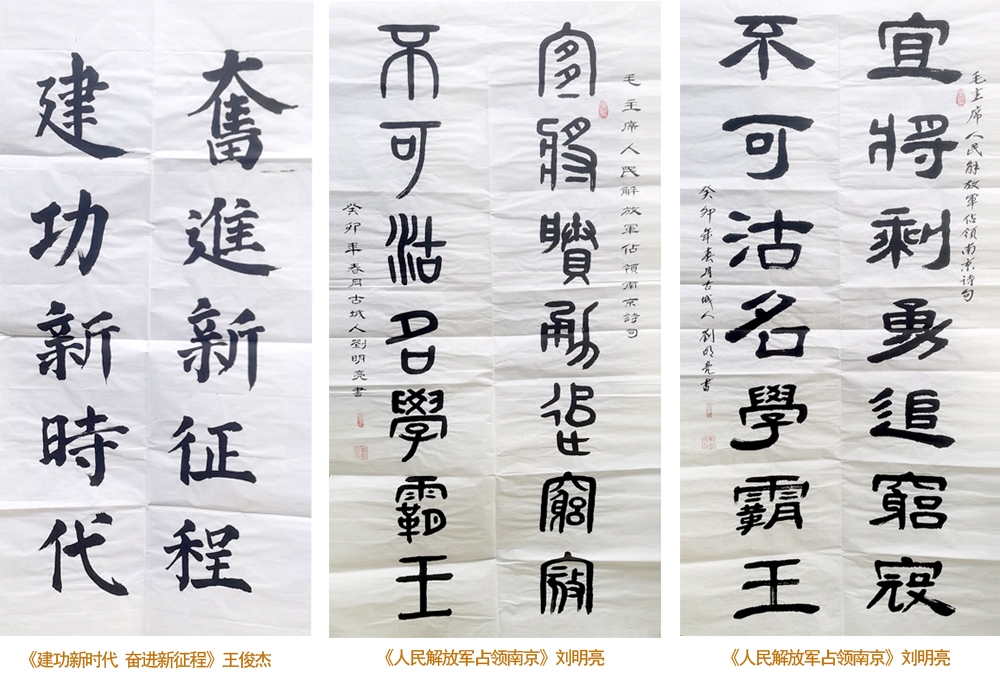 奮進新征程
建功新時代
毛主席人民解放軍佔領南京詩句
宜將賸勇追窮寇
不可沽名學霸王
癸卯年春月古城人劉明亮書
毛主席人民解放軍佔領南京诗句
宜將剩勇追窮寇
不可沽名學霸王
癸卯年春月古城人劉明亮書
《建功新时代 奋进新征程》王俊杰
《人民解放军占领南京》刘明亮
《人民解放军占领南京》刘明亮